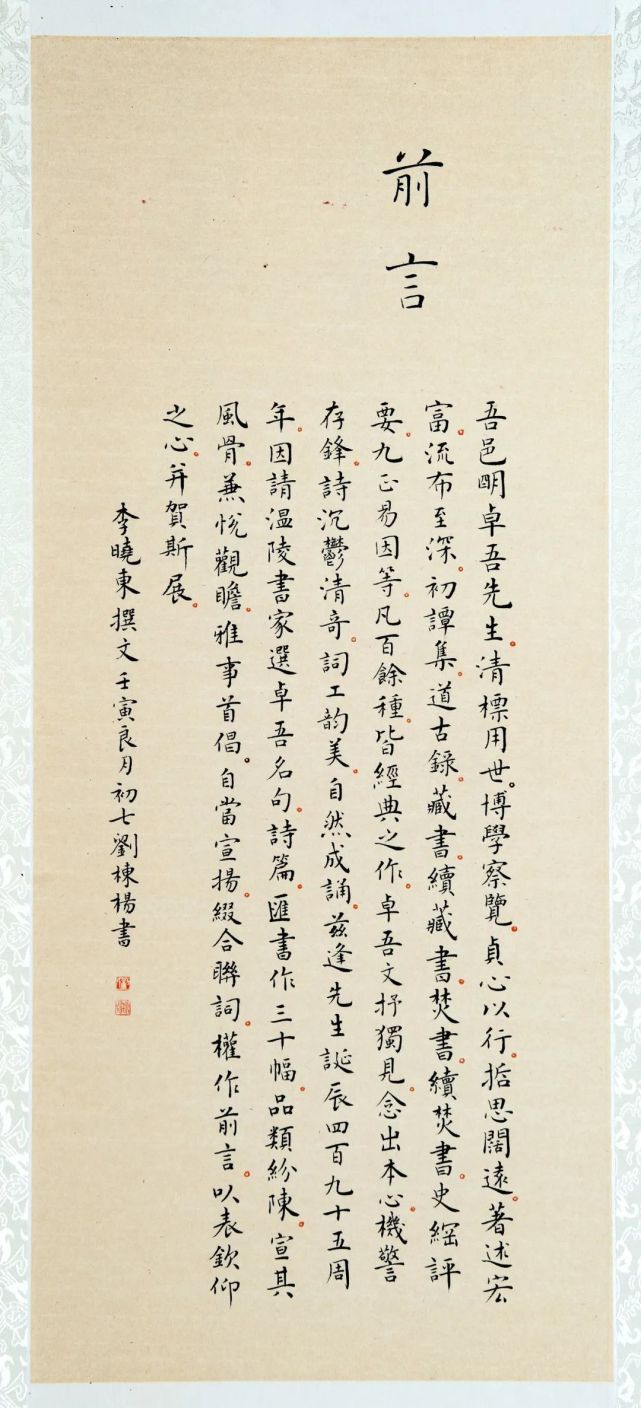 前言
吾邑明卓吾先生。清標用世。博學察覽。貞心以行。括思闊遠。著述宏
富。流布至深。初譚集。道古錄。藏書。續藏書。焚書。續焚書。史綱評
要。九正易因等。凡百餘種。皆經典之作。卓吾文抒獨見。念出本心。機警
存鋒。詩沉鬱清奇。詞工韵美。自然成誦。兹逢先生誕辰四百九十五周
年。因請温陵書家選卓吾名句。詩篇。匯書作三十幅。品類紛陳。宣其
風骨。兼悅觀瞻。雅事首倡。自當宣揚。綴合聯詞。權作前言。以表欽仰
之心。并賀斯展。
李曉東撰文壬寅良月初七劉棟楊書